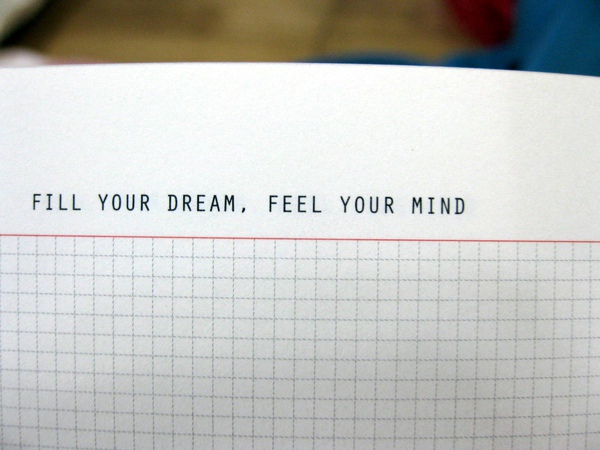 FILL YOUR DREAM, FEEL YOUR MIND